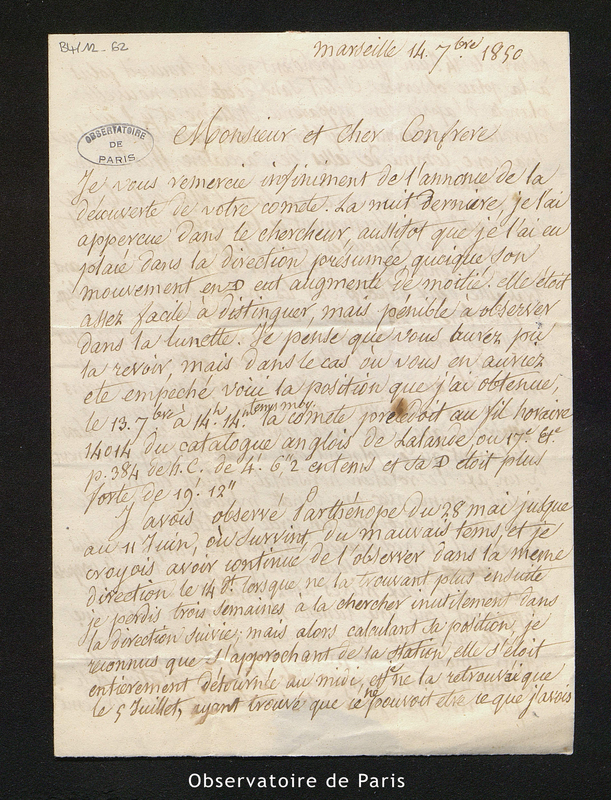 B4/12-62
Marseille 14. 7bre 1850
OBSERVATOIRE
DE
PARIS
Monsieur et cher Confrere
Je vous remercie infiniment de l'annonce de la
découverte de votre comete. La nuit derniere, je l'ai
apperçue dans le chercheur aussitot que je l'ai eu
placé dans la direction présumée quoique son
mouvement en D eut augmenté de moitié. elle étoit
assez facile à distinguer, mais pénible à observer
dans la lunette. Je pense que vous aurez pu
la revoir mais dans le cas où vous en auriez
eté empeché voici la position que j'ai obtenue,
le 13. 7bre à 14h. 14m tems moy. la comete précédoit au fil horaire
14014 du catalogue anglois de Lalande, ou 17e Et.
p. 384 de h. C. de 4' 6"2 en tems et sa D étoit plus
forte de 19' 12"
J'avois observé Parthénope du 28 mai jusque
au 11 Juin, où survint du mauvais tems, et je
croyois avoir continué de l'observer dans la meme
direction le 14 dt. lorsque ne la trouvant plus ensuite
je perdis trois semaines à la chercher inutilement dans
la direction suivie; mais alors calculant sa position je
reconnus que s'approchant de sa station, elle s'étoit
entièrement détournée au midi, effve. ne la retrouvai que
le 5 Juillet, ayant trouvé que ce ne pouvoit etre ce que j'avois
Observatoire de Paris